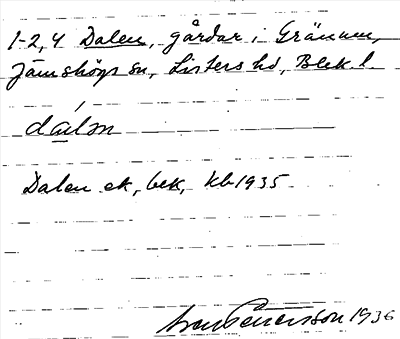 1-2, 4 Dalen, gårdar i Gränum,
Jämshögs sn, Listers hd, Blek. l.
dálən
Dalen ek, bek, kb 1935
Pettersson 1936